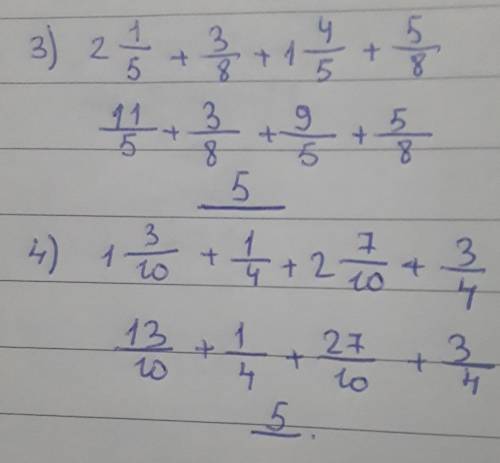 3) 2 1/5 + 3/8 + 1 4/5 + 5/8
11/5 + 3/8 + 9/5 + 5/8
5
4) 1 3/10 + 1/4 + 2 7/10 + 3/4
13/10 + 1/4 + 27/10 + 3/4
5.